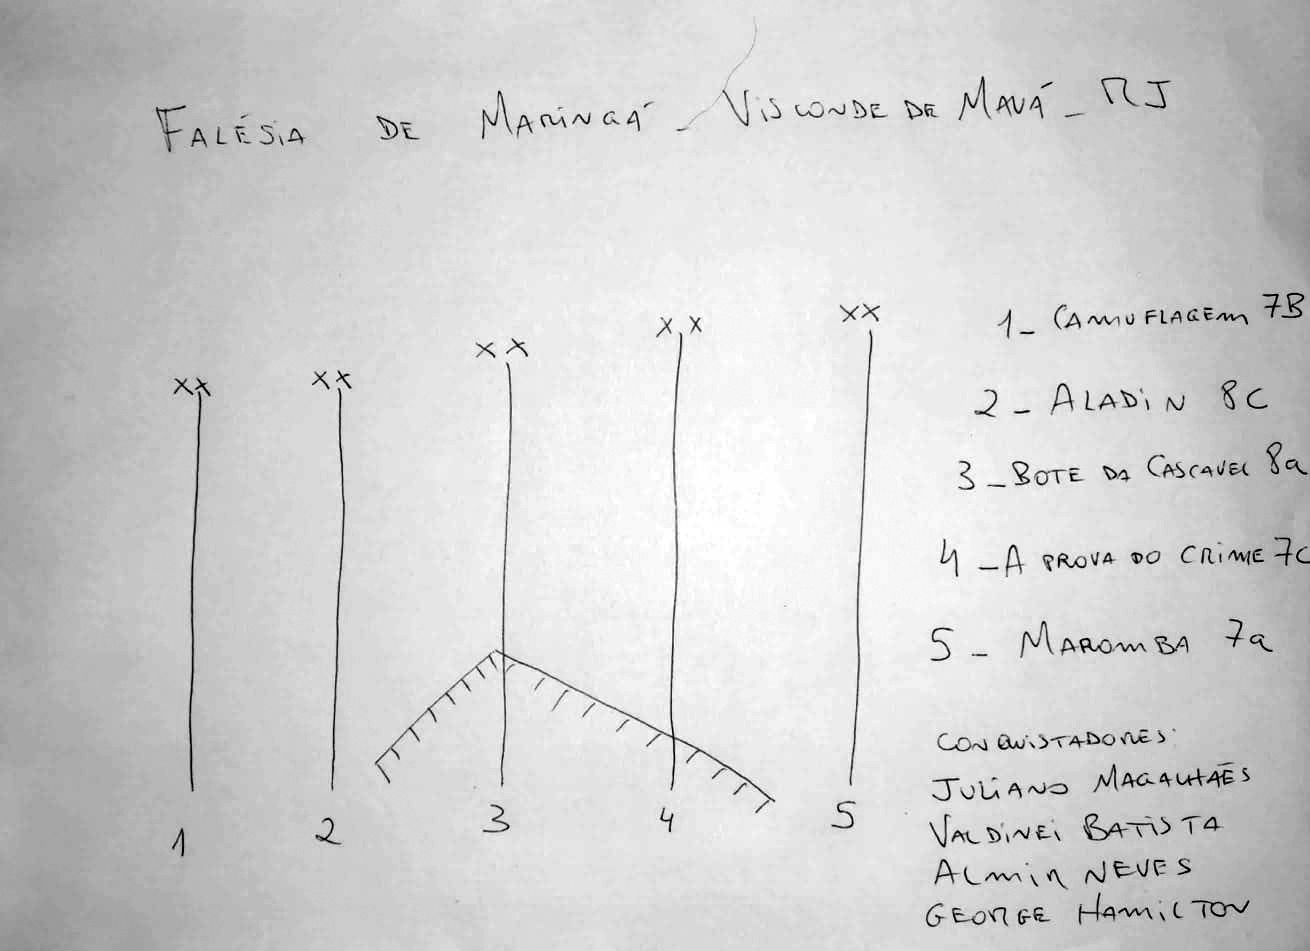 FALÉSIA DE MARINGÁ - VISCONDE DE MAUÁ - RJ
XX XX XX XX XX
1- CAMUFLAGEM 7B
2 - ALADIN 8C
3 - BOTE DA CASCAVEL 8a
4 - A PROVA DO CRIME 7C
5 - MAROMBA 7a
1 2 3 4 5
CONQUISTADORES:
JULIANO MAGALHÃES
VALDINEI BATISTA
ALMIR NEVES
GEORGE HAMILTON